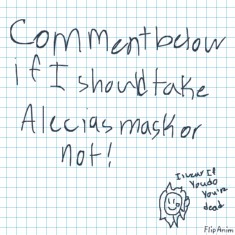 Comment below
if I should take
Aleccias mask or
not!
I swear If
You do
You're
dead
FlipAnim